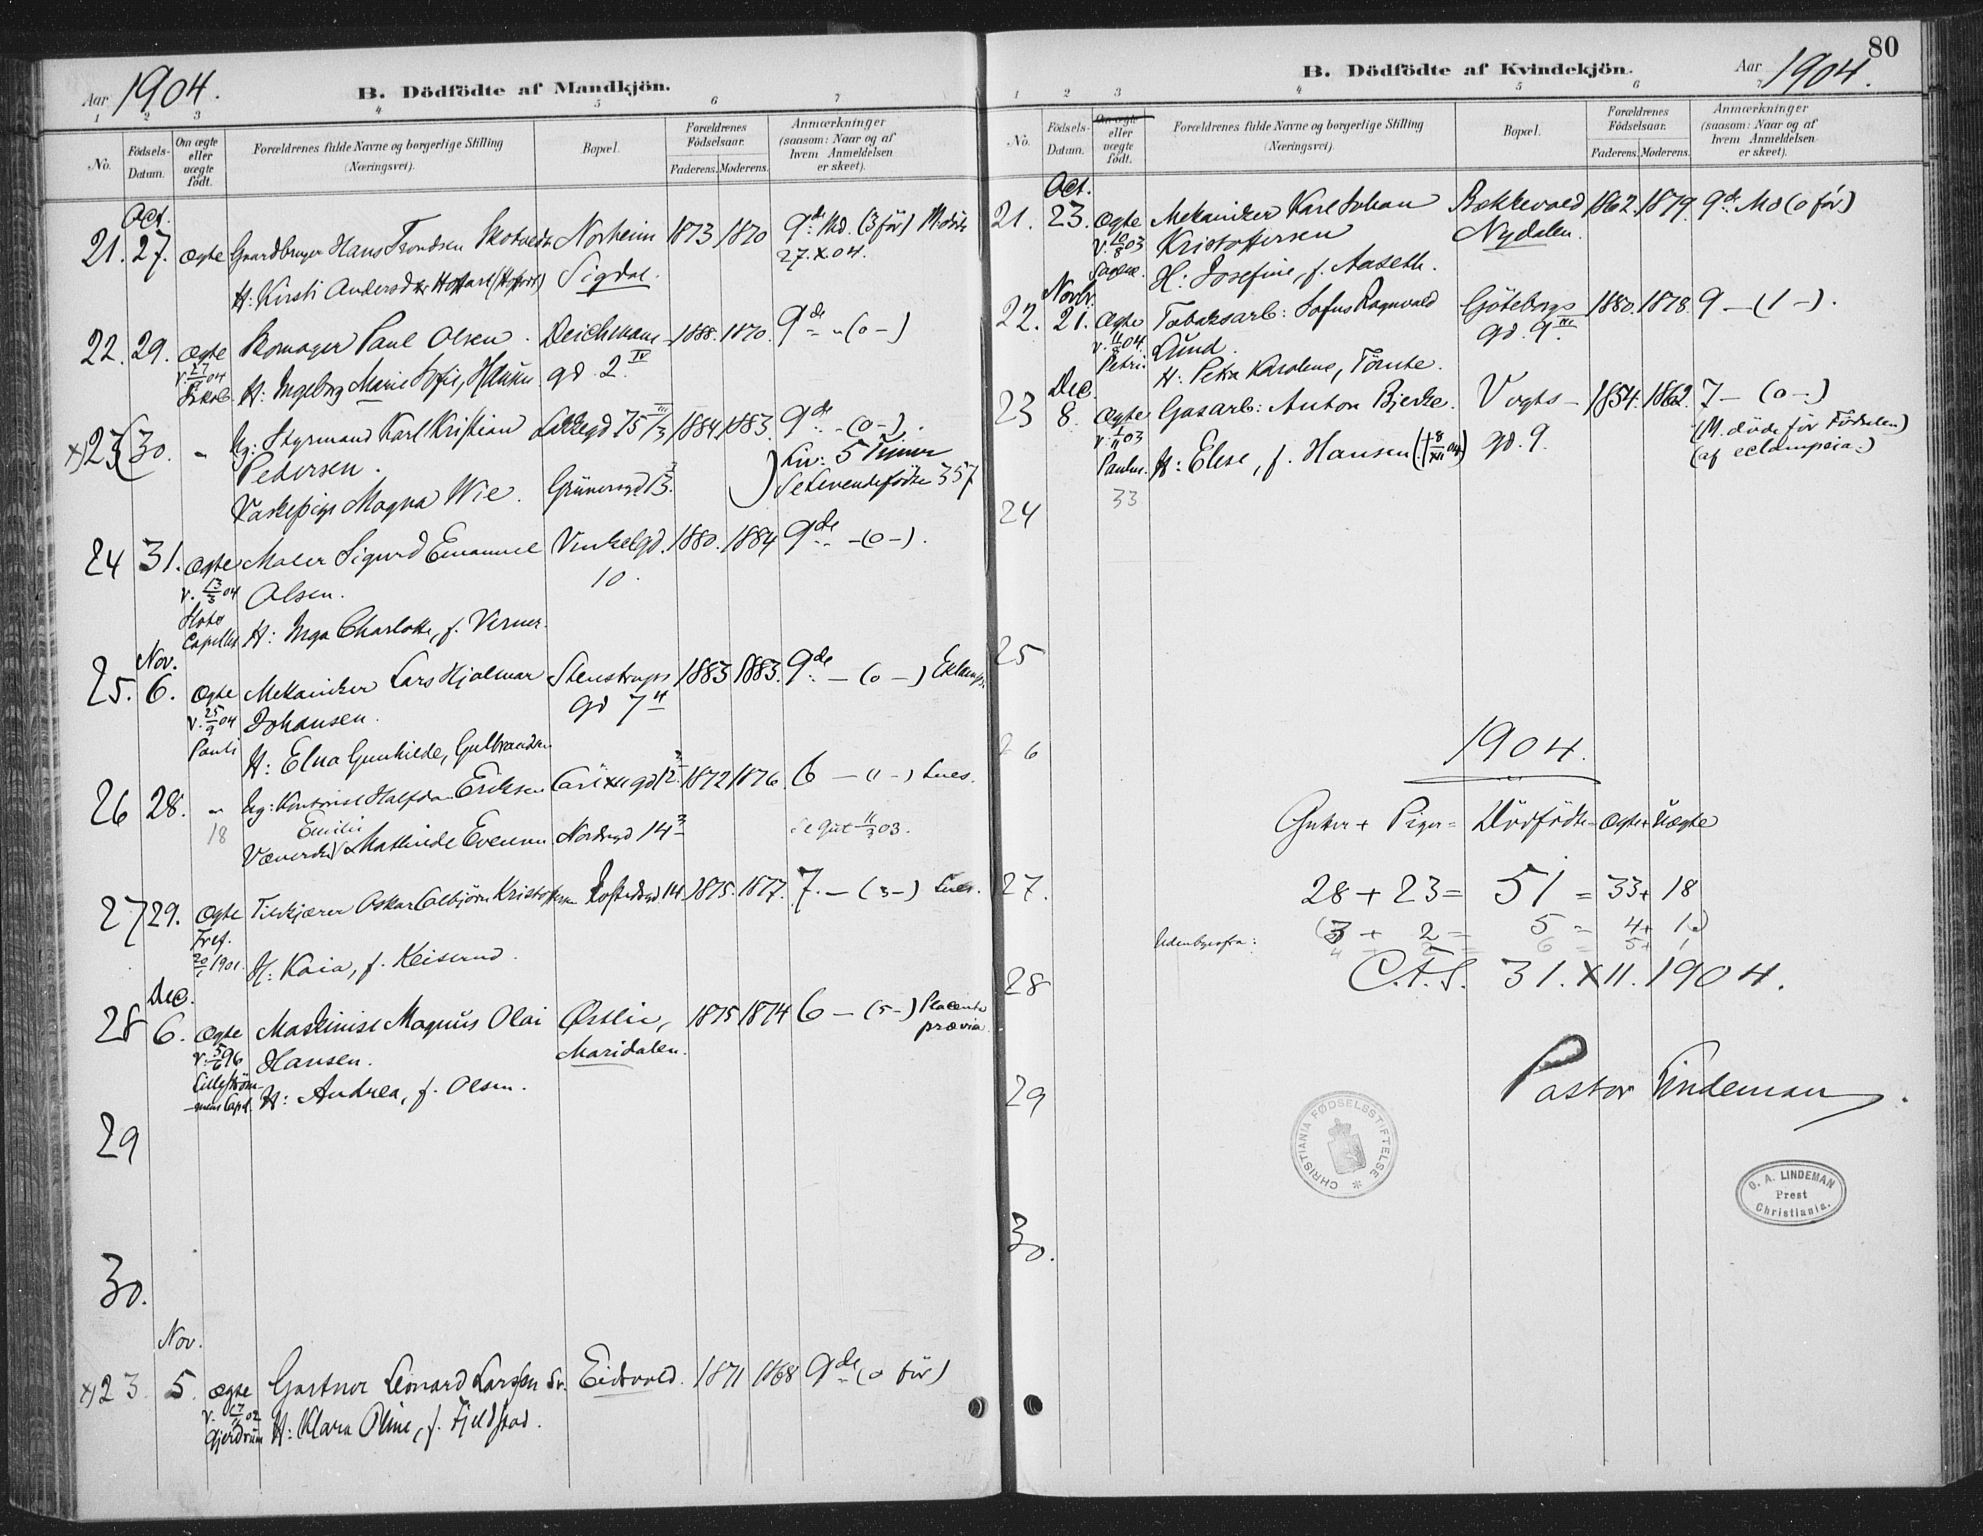 Aar 1904.
B. Dödfödte af Mandkjön.
1 2 3 4 5 6 7
No.
Födsels-
Datum.
Om ægte
eller
uægte
födt.
Forældrenes fulde Navne og borgerlige Stilling
(Næringsvei).
Bopæl.
Forældrenes
Födselsaar.
Faderens. Moderens.
Anmærkninger
(saasom: Naar og af
hvem Anmeldelsen
er skeet).
Oct.
21. 27. ægte Gaardbruger Hans Trondsen Norheim 1873 1870 9de Md. (3 för)
27.X.04.
H: Kirsti Andersd Sigdal.
22. 29. ægte Skomager Paul Olsen. Deichmans- 1888. 1870. 9de - (0 -)
v. 04
Jakob. H: Ingeborg Marie Sofie, gd. 2 IV
x) 23 30. - Ug: Styrmand Karl Kristian 1884 1883. 9de - (0 -).
Pedersen.
Liv: 5 Timer
Se Levendefödte 357
Vaskepige Magna Wie. Grünersgd 13.
24 31. ægte Maler Sigurd Emanuel Vinkelgd. 1880. 1884 9de - (0 -).
v. 13/3 04 Olsen. 10.
Capellet H: Inga Charlotte, f. Verner.
Nov.
25. 6. ægte Mekaniker Lars Hjalmar Stenstrups 1883 1883. 9de - (0 -) Eklamps.
v. 25/9 04 Johansen. gd 7
Pauli
H: Elna Gunhilde, Gulbrandsen
26 28. - Ug: Kontorist Halfdan Eriksen Carl XII gd 12 1872 1876. 6 - (1 -) Lues.
18 Emilie
Væverske Mathinde Evensen Nordregd 14 Se Gut 11/3 03.
27 29. ægte Oskar Kristoffersen 14. 1875. 1877. 7. - (3 -) Lues.
Fref.
20/1 1901. H: Kaia, f. Keiserud.
Dec.
28 6. ægte Maskinist Magnus Olai Østlie, 1875 1874 6 - (5 -) Placenta
prævia.
v. 5/6 96 Hansen. Maridalen.
Lillestrøm-
mens Capel. H: Andrea, f. Olsen.
29
30.
Nov.
x) 23. 5. ægte Gartner Leonard Larsen Eidsvold. 1871 1868 9de (0 för)
v. 02
Gjerdrum H: Klara Oline, f. Fjeldstad.
80
B. Dödfödte af Kvindekjön.
Aar 1904.
1 2 3 4 5 6 7
No.
Födsels-
Datum.
Om ægte
eller
uægte
födt.
Forældrenes fulde Navne og borgerlige Stilling
(Næringsvei).
Bopæl.
Forældrenes
Födselsaar.
Faderens. Moderens.
Anmærkninger
(saasom: Naar og af
hvem Anmeldelsen
er skeet).
Oct.
21. 23. ægte Mekaniker Karl Johan Bakkevold 1862. 1879. 9de Md (0 för)
v. 10/8 03 Kristoffersen Nydalen.
Sagene. H: Josefine, f. Aaseth.
Novbr.
22. 21. ægte Tobaksarb: Sofus Ragnvald Göteborgs 1880. 1878. 9 - (1 -).
v. 04 Lund. gd. 9 III.
Petri. H: Petra Karolene, Tömte.
Dec.
23 8. ægte Gasarb: Anton Bjerke. Vogts- 1854. 1862. 7 - (0 -)
v. 1/11 03 (M. döde för Födselen)
Paulus. H: Elise, f. Hansen († 8/XII 04) gd. 9. (af eclampsia.)
24 33
25
26
1904.
Gutter + Piger = Dödfödte = ægte + Uægte
27. 28 + 23 = 51 = 33 + 18
Udenbysfra: (3 + 2 = 5 = 4 + 1)
28 31. XII. 1904.
Pastor Lindeman.
29
CHRISTIANIA FØDSELSSTIFTELSE
G. A. LINDEMAN
Prest
Christiania.
30.